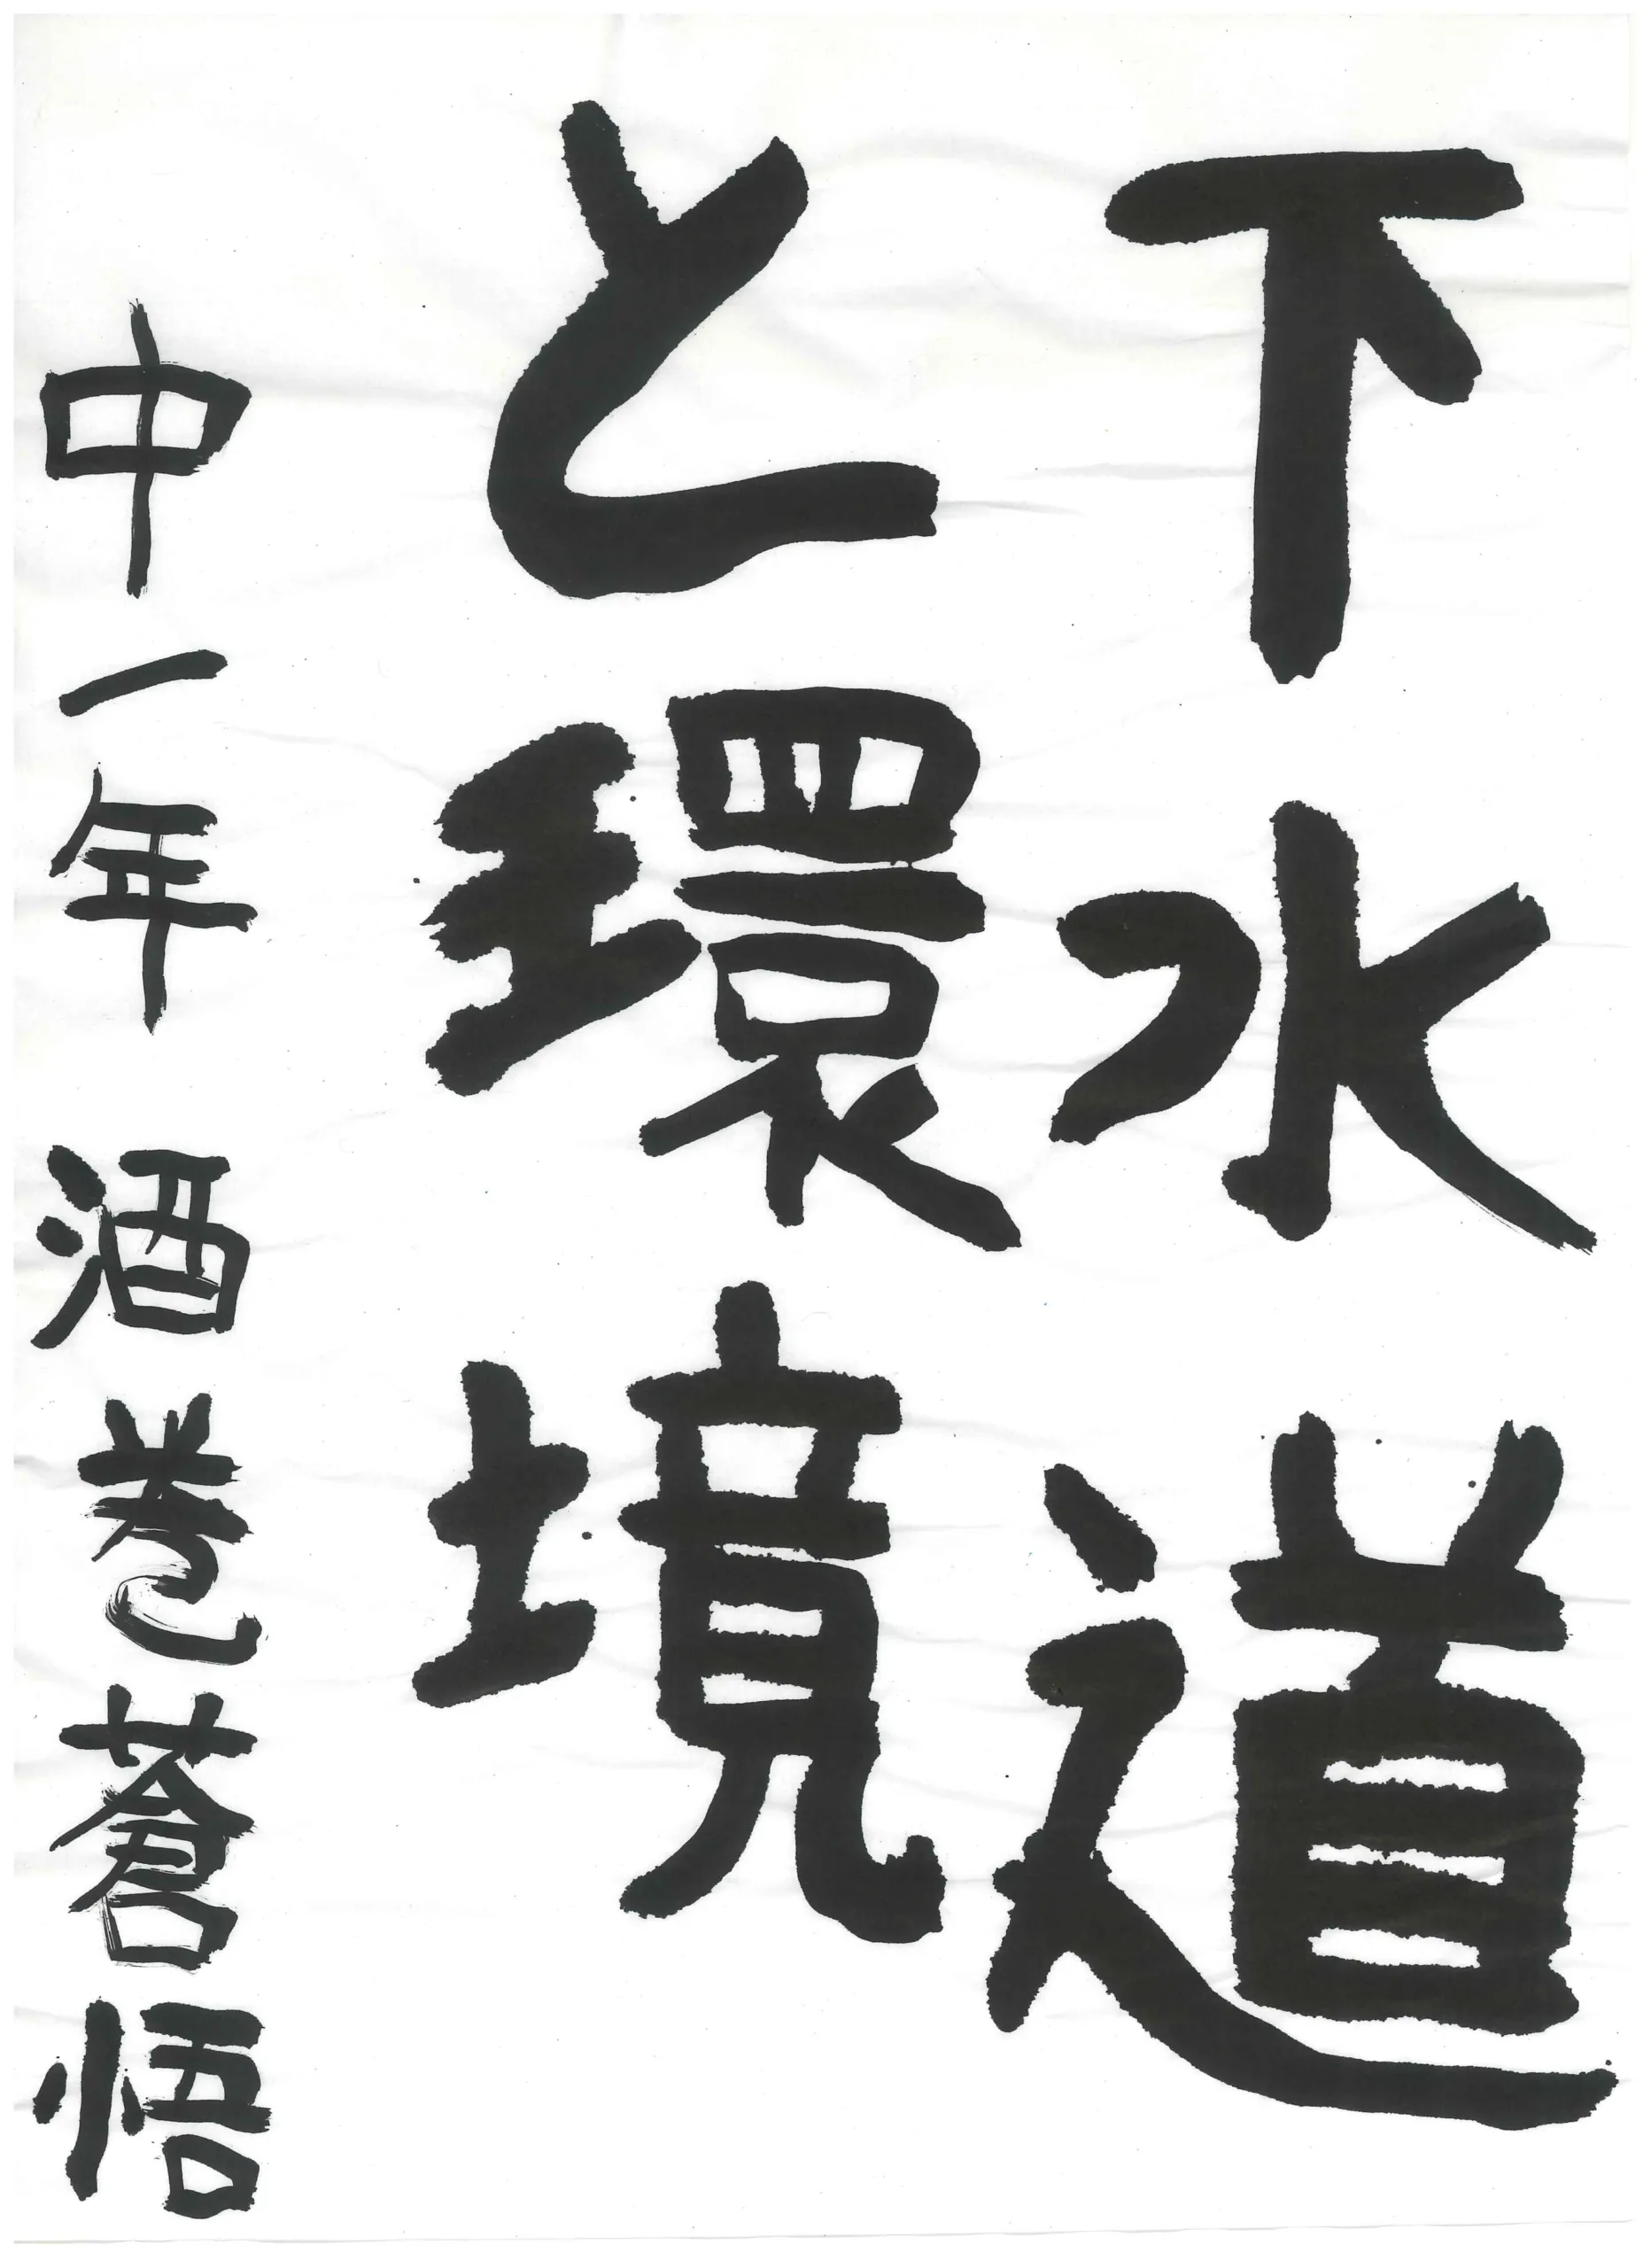 下水道
と環境
中一年 酒巻蒼悟